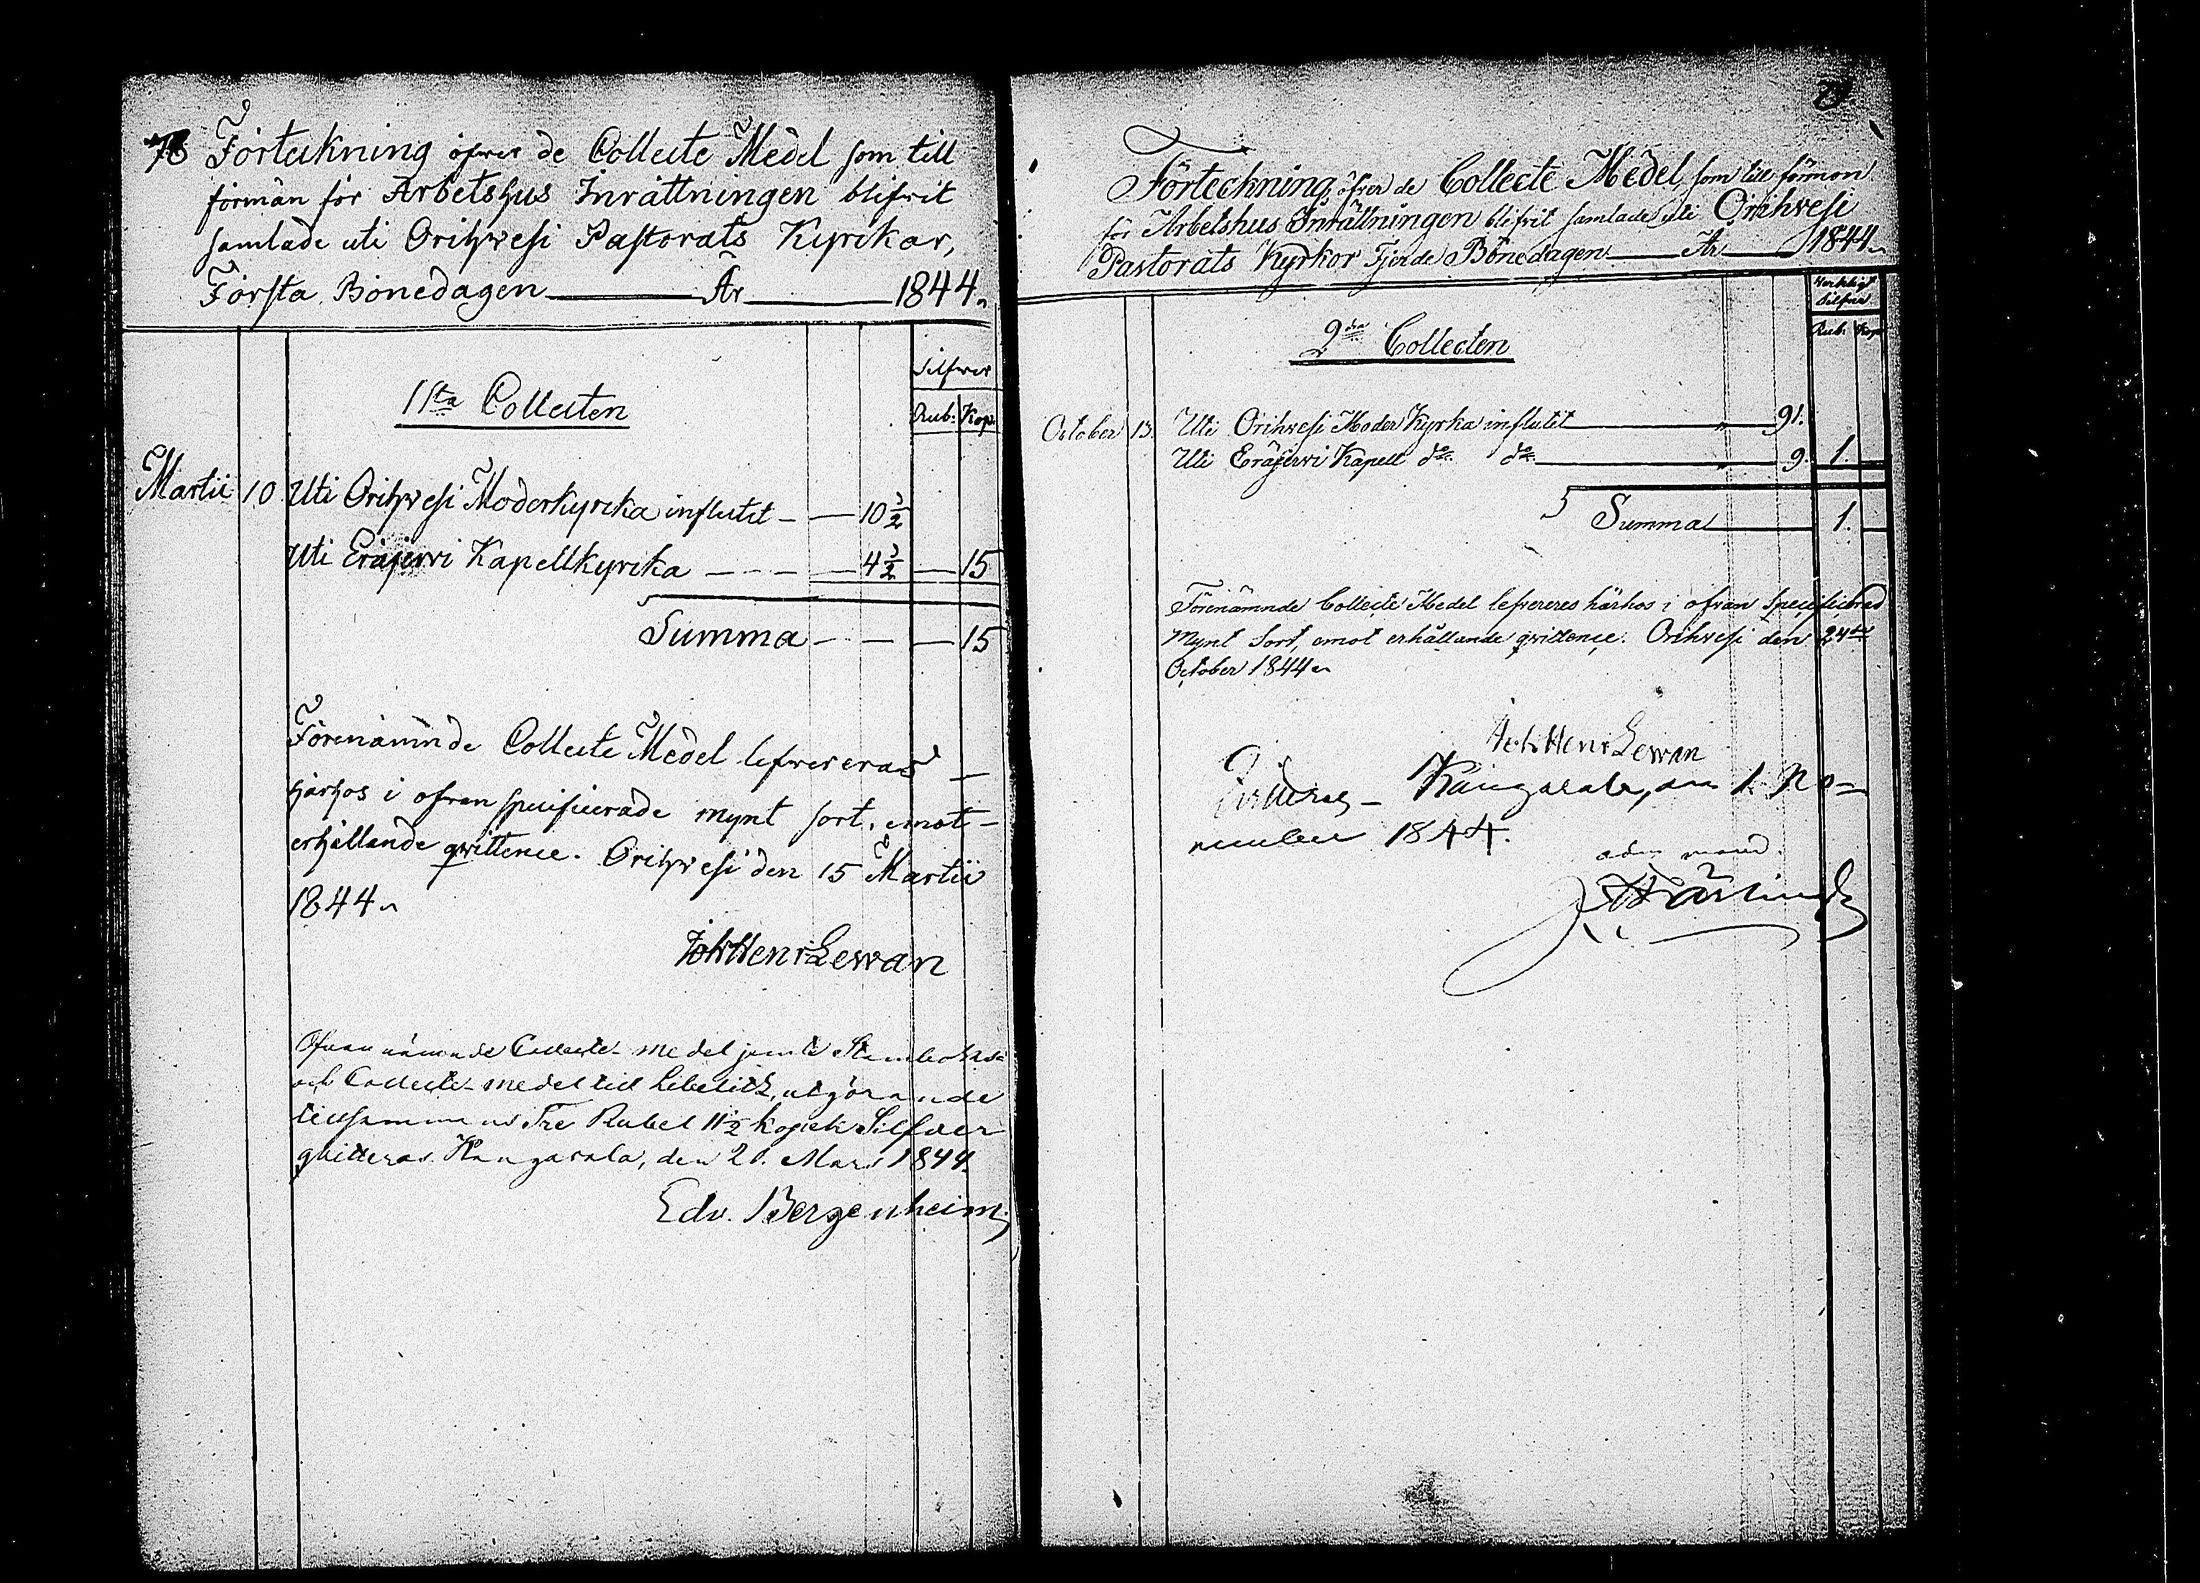 78 Förteckning öfwer de Collecte Medel som till
förmån för Arbetshus Inrättningen blifwit
samlade uti Orihwesi Pastorats Kyrckor,
Första Bönedagen År 1844.
Silfwer
1sta Collecten
Rub: Kop:
Martii 10 Uti Orihwesi Moderkyrcka influtit 10 1/2
Uti Eräjerwi Kapellkyrcka 4 1/2 15
Summa 15
Förenämnde Collecte Medel lefwereras
härhos i ofvan specificerade mynt sort, emot
erhållande qwittence. Orihwesi den 15 Martii
1844.
Joh Henr Lewan
Ofvannämnde Collecte medel jemte
och Collecte-medel till Libelitz, utgörande
tillsammans Tre Rubel 11 1/2 kopek Silfver
qvitteras. Kangasala, den 20. Mars 1844.
Edv. Bergenheim
Förteckning öfver de Collecte Medel, som till förmon
för Arbetshus Inrättningen blifvit samlade uti Orihvesi
Pastorats Kyrkor Fjerde Bönedagen År 1844.
Verkligt
Silfver
Rub: Kop
2dra Collecten
October 13. Uti Orihvesi Moder Kyrka influtit 91.
Uti Eräjervi Kapell do do 9. 1.
Summa 1.
Förenämnde Collecte Medel lefvereres härhos i ofvan specificerad
Mynt Sort, emot erhållande qvittence. Orihvesi den 24de
October 1844.
Joh Henr Lewan
Qvitteras Kangasala, den 1. No=
vember 1844.